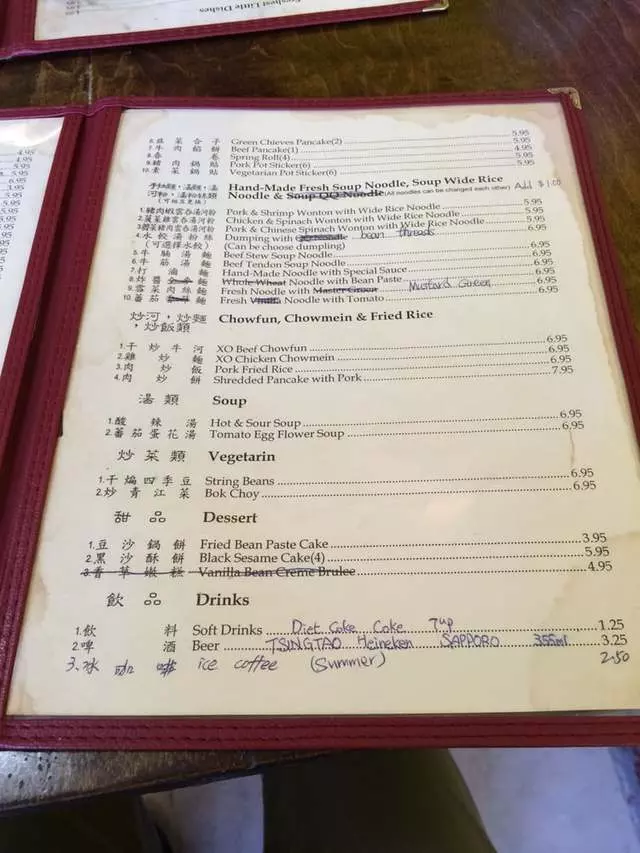 Freshest Little Dishes
4.95
5.95
6.韮菜合子 Green Chieves Pancake(2) 5.95
7.牛肉餡餅 Beef Pancake(1) 4.95
8.春卷 Spring Roll(4) 5.95
9.豬肉鍋貼 Pork Pot Sticker(6) 5.95
10.素菜鍋貼 Vegetarian Pot Sticker(6) 5.95
Hand-Made Fresh Soup Noodle, Soup Wide Rice
Noodle & Soup QQ Noodle (All noodles can be changed each other) Add $1.00
(可相互更換)
1.豬肉蝦雲吞湯河粉 Pork & Shrimp Wonton with Wide Rice Noodle 5.95
2.菠菜雞雲吞湯河粉 Chicken & Spinach Wonton with Wide Rice Noodle 5.95
3.薺菜豬雲吞湯河粉 Pork & Chinese Spinach Wonton with Wide Rice Noodle 5.95
4.水餃湯粉絲 Dumping with QQ Noodle bean threads 6.95
(可選擇水餃) (Can be choose dumpling)
5.牛腩湯麵 Beef Stew Soup Noodle 6.95
6.牛筋湯麵 Beef Tendon Soup Noodle 6.95
7.打滷麵 Hand-Made Noodle with Special Sauce 6.95
8.炸醬全麥麵 Whole Wheat Noodle with Bean Paste 6.95
9.雪菜肉絲麵 Fresh Noodle with Master Green Mustard Green 6.95
10.番茄麵 Fresh Noodle with Tomato 6.95
炒河，炒麵，炒飯類 Chowfun, Chowmein & Fried Rice
1.干炒牛河 XO Beef Chowfun 6.95
2.雞炒麵 XO Chicken Chowmein 6.95
3.肉炒飯 Pork Fried Rice 6.95
4.肉炒餅 Shredded Pancake with Pork 7.95
湯類 Soup
1.酸辣湯 Hot & Sour Soup 6.95
2.蕃茄蛋花湯 Tomato Egg Flower Soup 6.95
炒菜類 Vegetarin
1.干煸四季豆 String Beans 6.95
2.炒青江菜 Bok Choy 6.95
甜品 Dessert
1.豆沙鍋餅 Fried Bean Paste Cake 3.95
2.黑沙酥餅 Black Sesame Cake(4) 5.95
3.香草嫩糕 Vanilla Bean Creme Brulee 4.95
飲品 Drinks
1.飲料 Soft Drinks Diet Coke Coke 7up 1.25
2.啤酒 Beer TSINGTAO Heineken SAPPORO 355ml 3.25
3.冰咖啡 ice coffee (Summer) 2.50